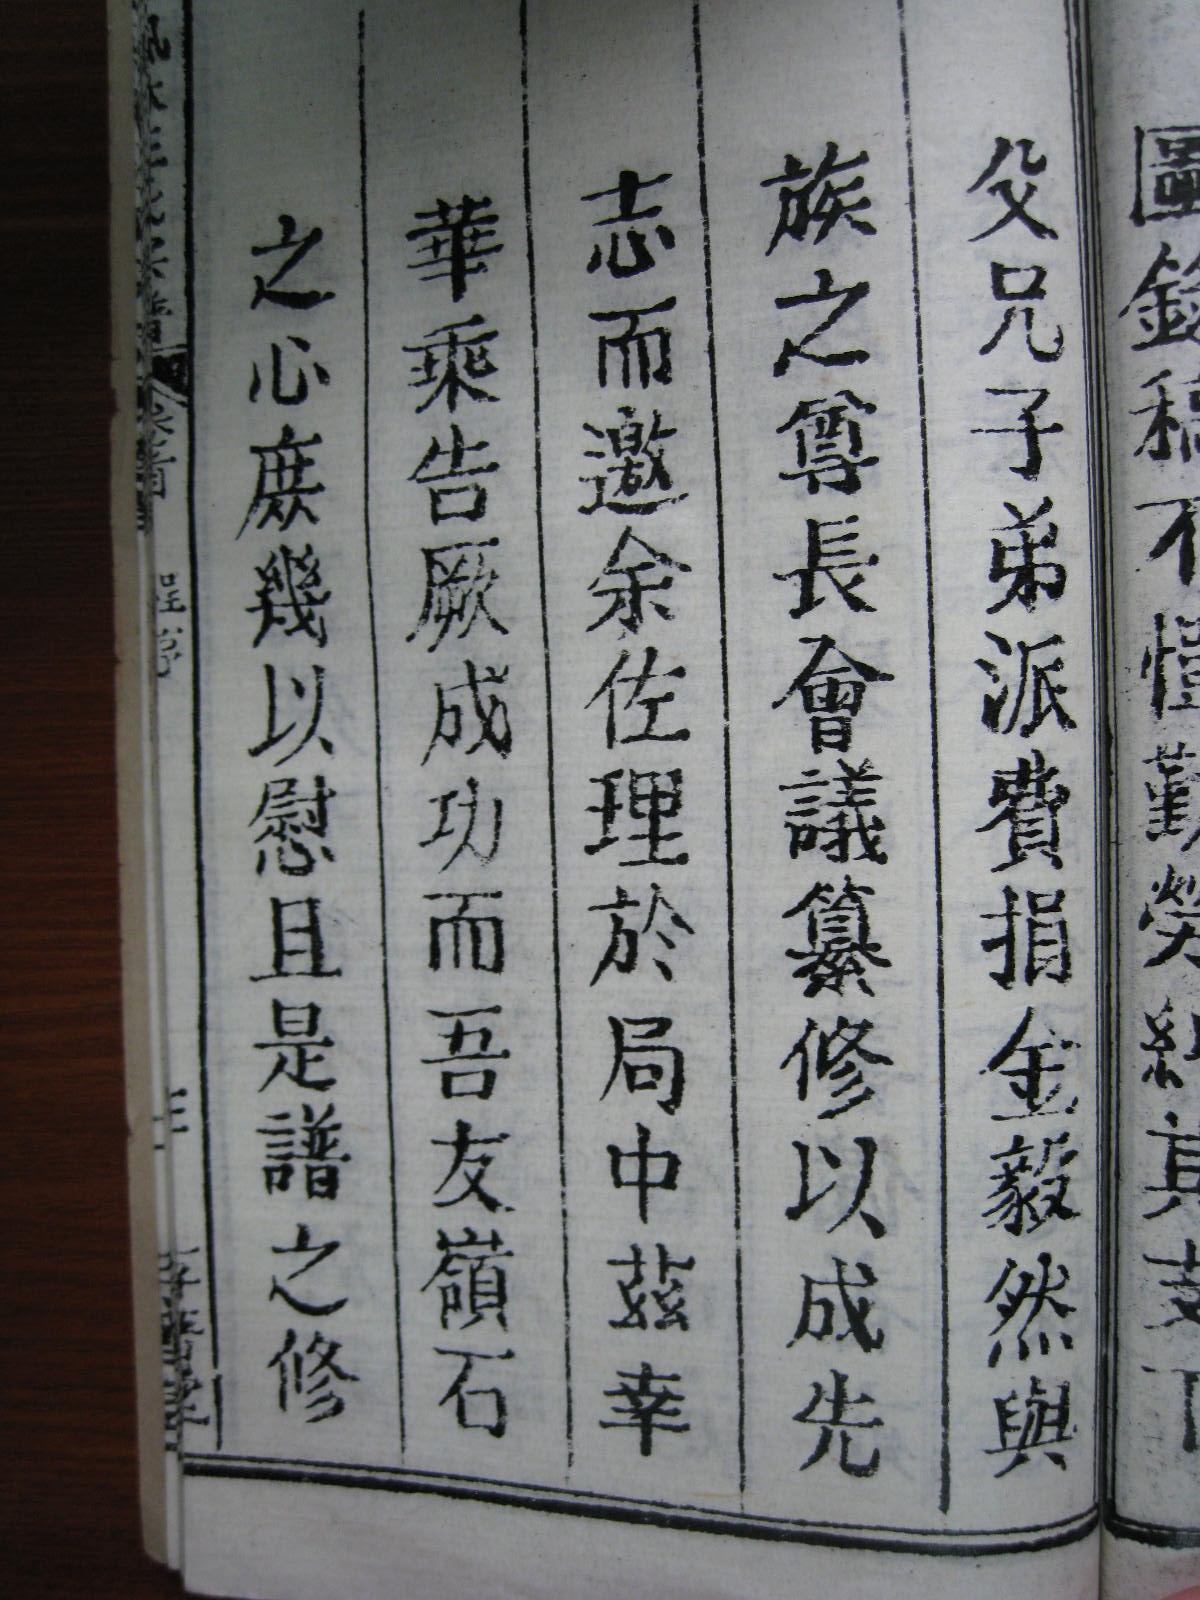 圖錄稿不憚勤勞糾
父兄子弟派費捐金毅然與
族之尊長會議纂修以成先
志而邀余佐理於局中茲幸
華乘告厥成功而吾友嶺石
之心庶幾以慰且是譜之修
卷首